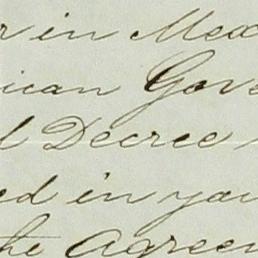 r in Mex
ican Gove
l Decree
ed in you
the Agreem